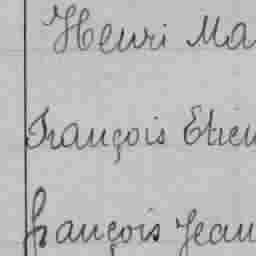 Henri Ma
François Etien
françois Jean